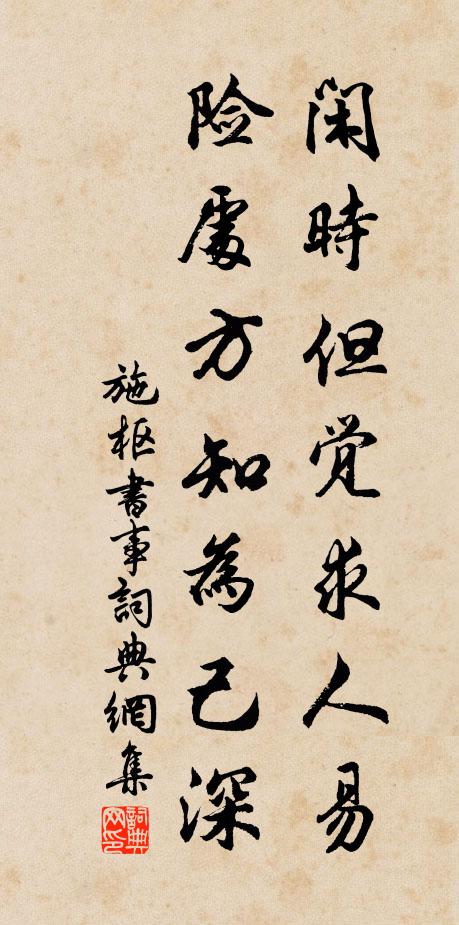 閑時但覺求人易
险處方知為己深
施枢書事詞典網集
詞典网印